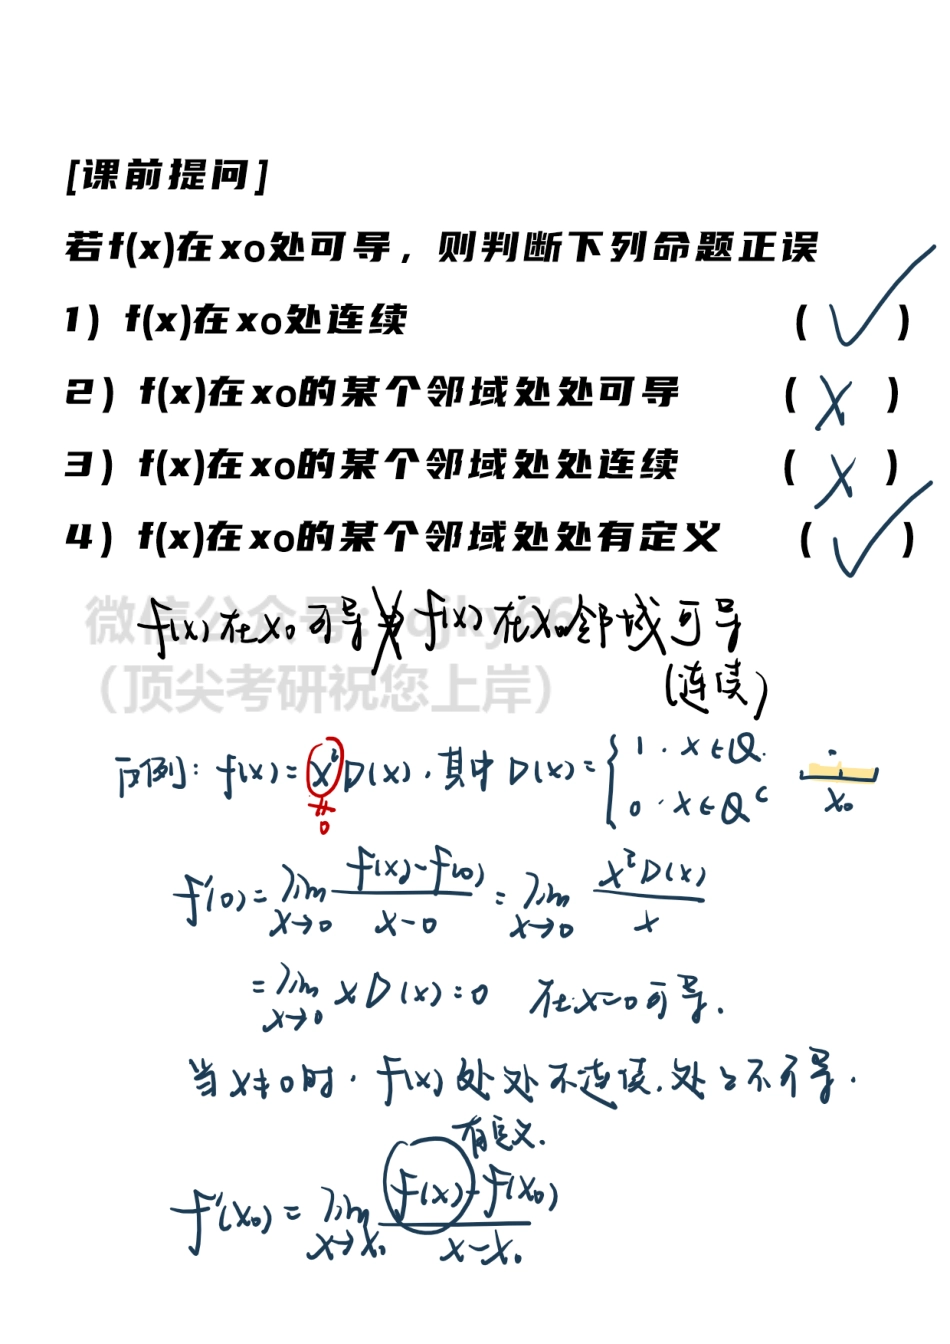 [课前提问]
若f(x)在x₀处可导，则判断下列命题正误
1）f(x)在x₀处连续 (✓)
2）f(x)在x₀的某个邻域处处可导 (×)
3）f(x)在x₀的某个邻域处处连续 (×)
4）f(x)在x₀的某个邻域处处有定义 (✓)
微信公众号: djky66
f(x)在x₀可导⇏f(x)在x₀邻域可导
(连续)
（顶尖考研祝您上岸）
反例: f(x)=x²D(x), 其中D(x)={1, x∈Q. 0, x∈Qᶜ
≠0
x₀
f'(0)=lim x→0 (f(x)-f(0))/(x-0) = lim x→0 x²D(x)/x
=lim x→0 xD(x)=0 在x=0可导.
当x≠0时, f(x)处处不连续,处处不可导.
有定义.
f'(x₀)=lim x→x₀ (f(x)-f(x₀))/(x-x₀)